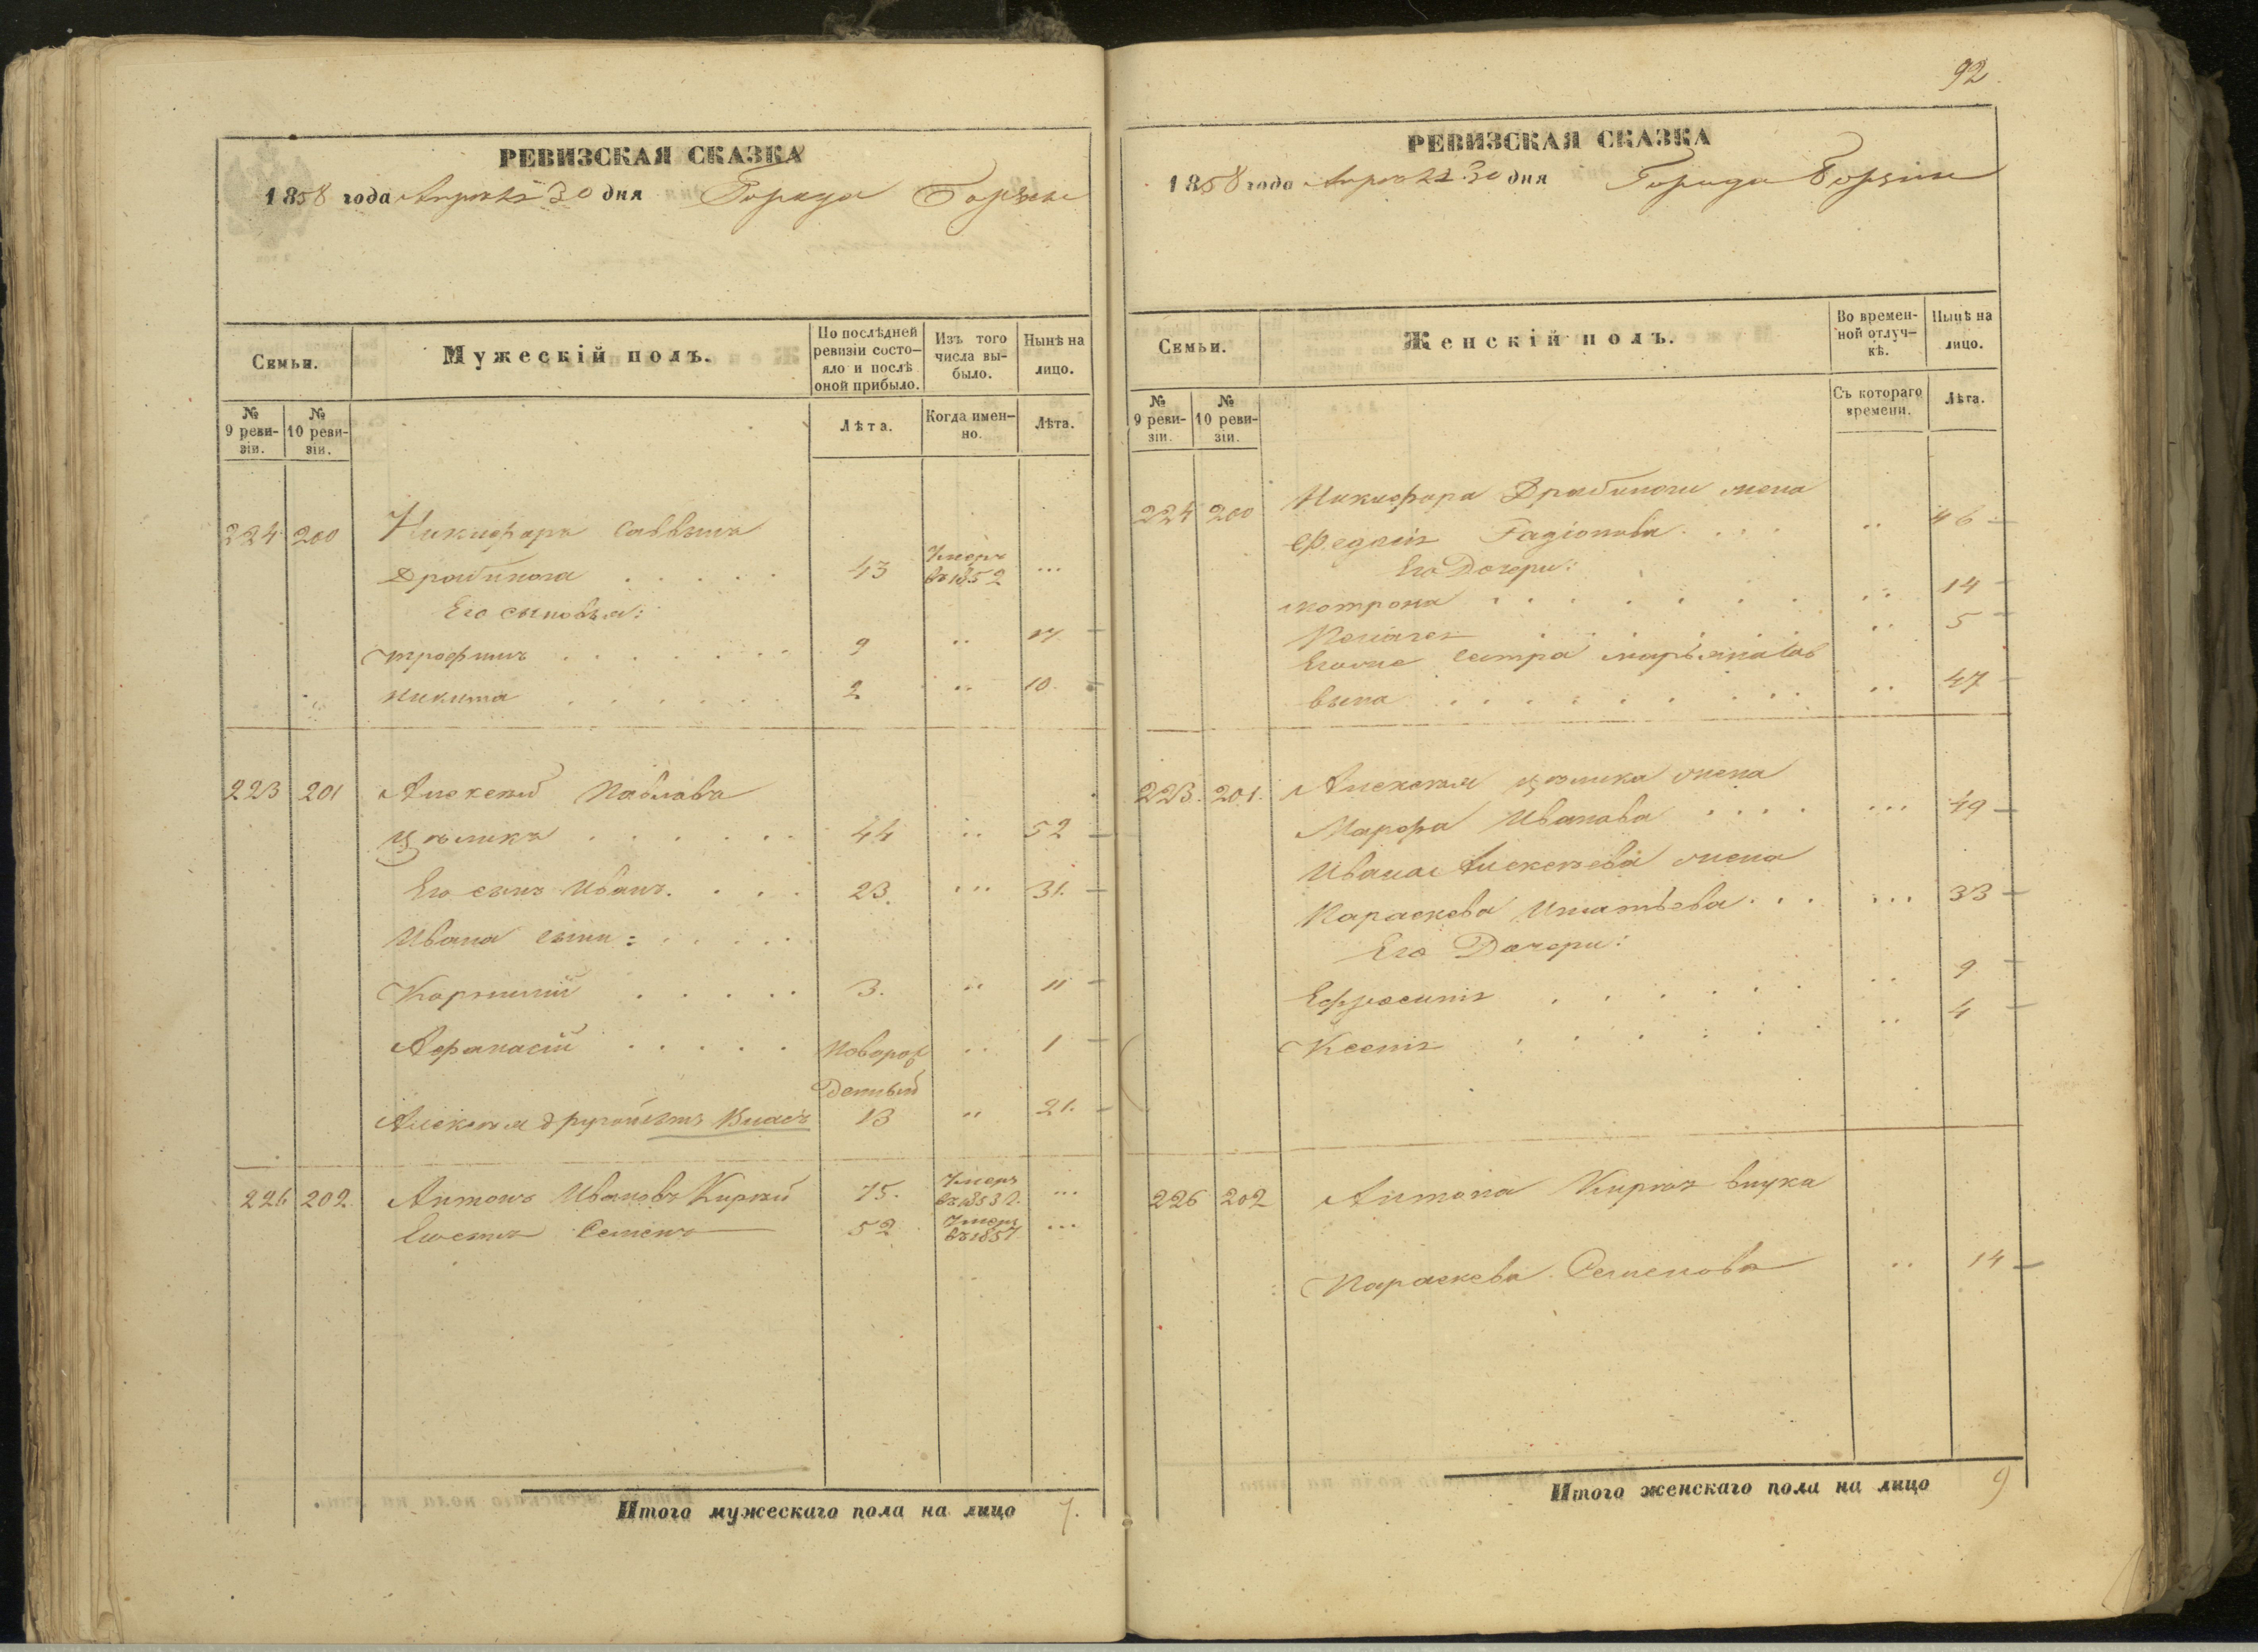 РЕВИЗСКАЯ СКАЗКА
1858 года Апрѣля 30 дня Города Борзны
Семьи.
Мужескій полъ.
По послѣдней ревизіи состо-
яло и послѣ
оной прибыло.
Изъ того
числа вы-
было.
Нынѣ на
лицо.
№
9 реви-
зіи.
№
10 реви-
зіи.
Лѣта.
Когда имен-
но.
Лѣта.
224 200 Никифоръ Саввинъ
43 Умеръ въ 1852 ...
Его сыновья:
Трофимъ 9 .. 17
Никита 2 .. 10.
223 201 Алексей Павлова
Цѣликъ 44 .. 52
Его сынъ Иванъ. 23. ... 31.
Ивана сыны:
Корнилий 3. .. 11
Афанасій Новорож
денный .. 1
Алексея другой сынъ Власъ 13 .. 21.
226 202 Антонъ Ивановъ Кирѣй 75. Умеръ въ 1853 г. ...
Его сынъ Семенъ 52 Умеръ въ 1857 ...
Итого мужескаго пола на лицо 7.
92
РЕВИЗСКАЯ СКАЗКА
1858 года Апрѣля 30 дня Города Борзны
Семьи.
Женскій полъ.
Во времен-
ной отлуч-
кѣ.
Нынѣ на
лицо.
№
9 реви-
зіи.
№
10 реви-
зіи.
Съ котораго
времени.
Лѣта.
224 200 Никифора жена
.. 46
Его Дочери:
Мотрона .. 14
.. 5
Его же сестра Марьяна Сав
вына .. 47
223. 201. Алексея Цѣлика жена
Марфа Иванова ... 49
Ивана Алексеева жена
Параскева Игнатьева ... 33
Его Дочери:
Ефросинія .. 9
Ксенія .. 4
226 202 Антона Кирѣя внука
Параскева Семенова .. 14
Итого женскаго пола на лицо 9